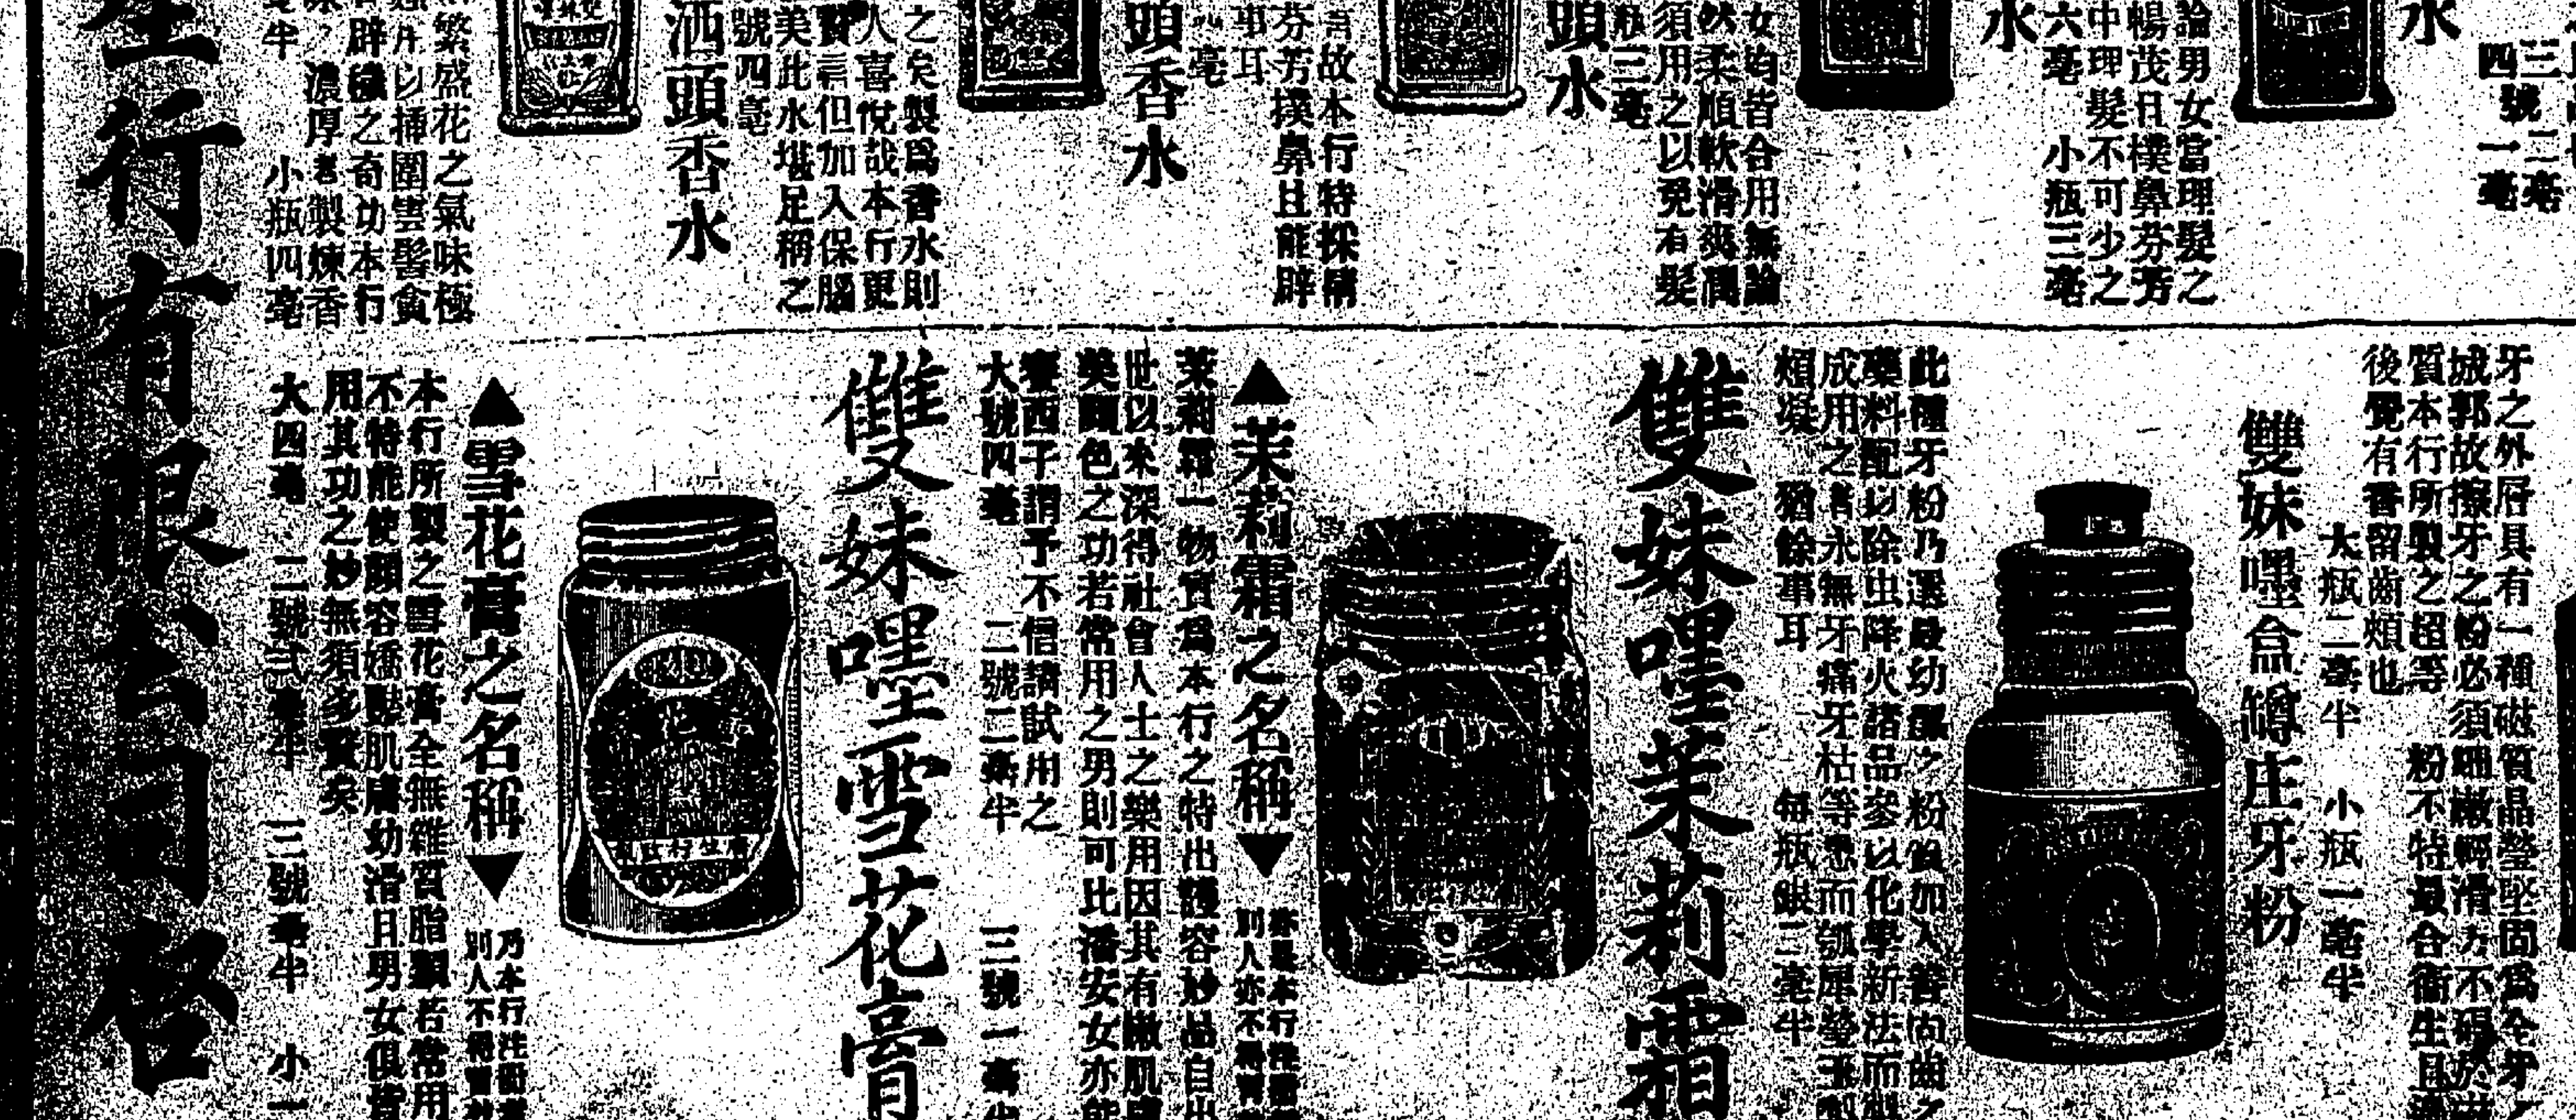 三毫
四號一毫
水
論男女當理髮之
暢茂且樸鼻芬芳
中理髮不可少之
六毫 小瓶三毫
水
女均皆合用無論
然柔順軟滑爽潤
須用之以免有髮
瓶三毫
頭水
言故本行特採購
芬芳撲鼻且能辟
事耳
毫
頭香水
之矣製爲香水則
人喜悅哉本行更
言但加入保腦
美此水堪足稱之
號四毫
洒頭香水
繁盛花之氣味極
以插圍雲髻貪
辟穢之奇功本行
濃厚製煉香
毫半 小瓶四毫
牙之外層具有一種磁質晶瑩堅固爲全牙
城郭故擦牙之粉必須細嫩輕滑方不碍於
質本行所製之超等 粉不特最合衞生且
後覺有香留齒頰也
大瓶二毫半 小瓶一毫半
雙妹嚜盒罇庄牙粉
此種牙粉乃選最幼潔之粉質加入善向齒之
藥料配以除虫降火諸品參以化學新法而製
成用之者永無牙痛牙枯等患而瓠犀瑩玉
頰凝 猶餘事耳 每瓶銀二毫半
雙妹嚜茉莉霜
▲茉莉霜之名稱▼
本行注冊
別人亦不得冒
茉莉霜一物實爲本行之特出護容妙品自出
世以來深得社會人士之樂用因其有嫩肌膚
美顏色之功若常用之男則可比潘安女亦能
賽西子謂予不信請試用之
大號四毫 二號二毫半 三號一毫半
雙妹嚜雪花膏
▲雪花膏之名稱▼
乃本行注冊
別人不得冒
本行所製之雪花膏全無雜質脂顯若常用
不特能使顏容嬌艷肌膚幼滑且男女俱皆
用其功之妙無須多贅矣
大四毫 二號弍毫半 三號毫半 小一
生行有限公司啓